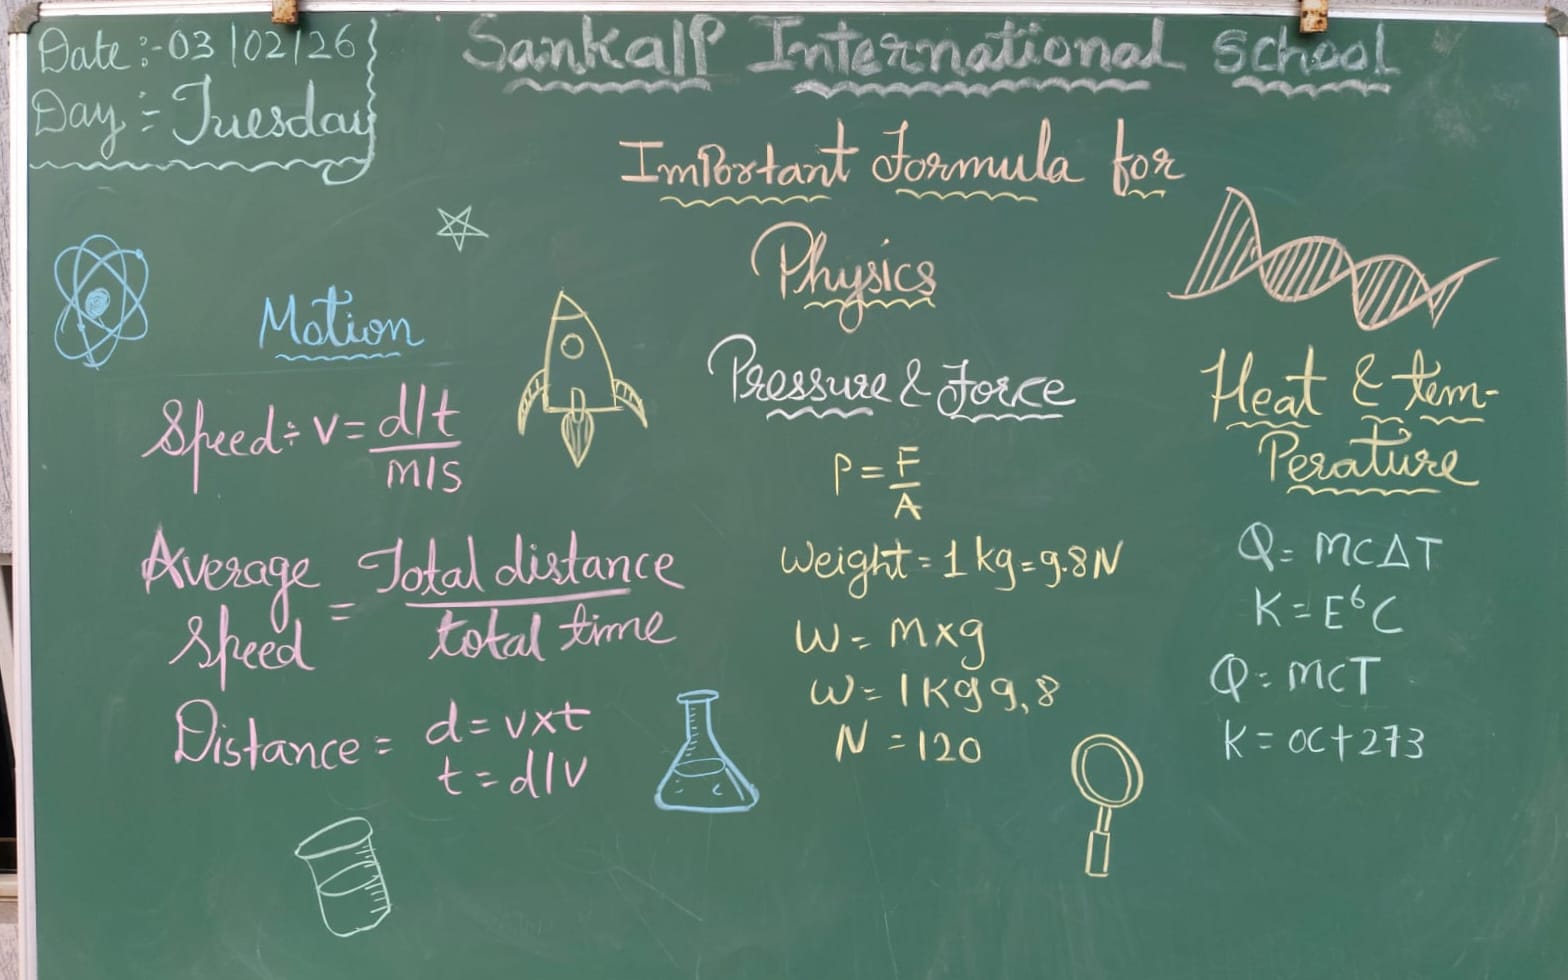 Date :- 03/02/26
Day :- Tuesday
Sankalp International School
Important Formula for
Physics
Motion
Speed÷ v = d/t
m/s
Average speed = Total distance
total time
Distance = d = v×t
t = d/v
Pressure & Force
P = F
A
Weight = 1 kg = 9.8N
W = m×g
W = 1kg 9,8
N = 120
Heat & tem-
Perature
Q = mcΔT
K = E⁶C
Q = mcT
K = oc+273